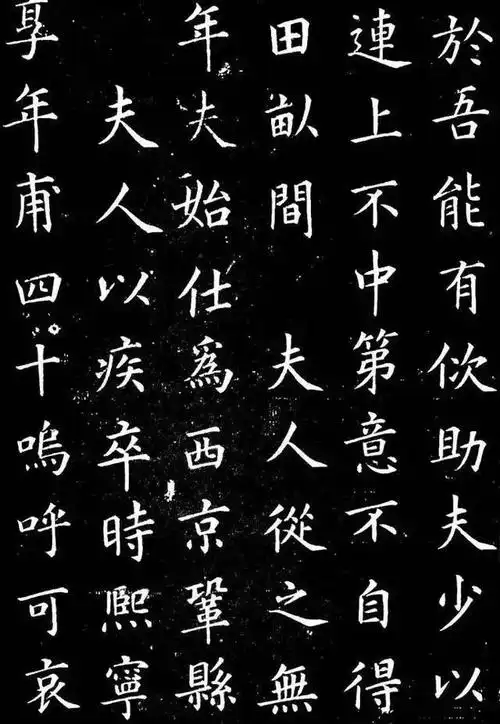 於吾能有佽助夫少以
連上不中第意不自得
田畝間 夫人從之無
年夫始仕爲西京鞏縣
夫人以疾卒時熙寧
享年甫四十嗚呼可哀